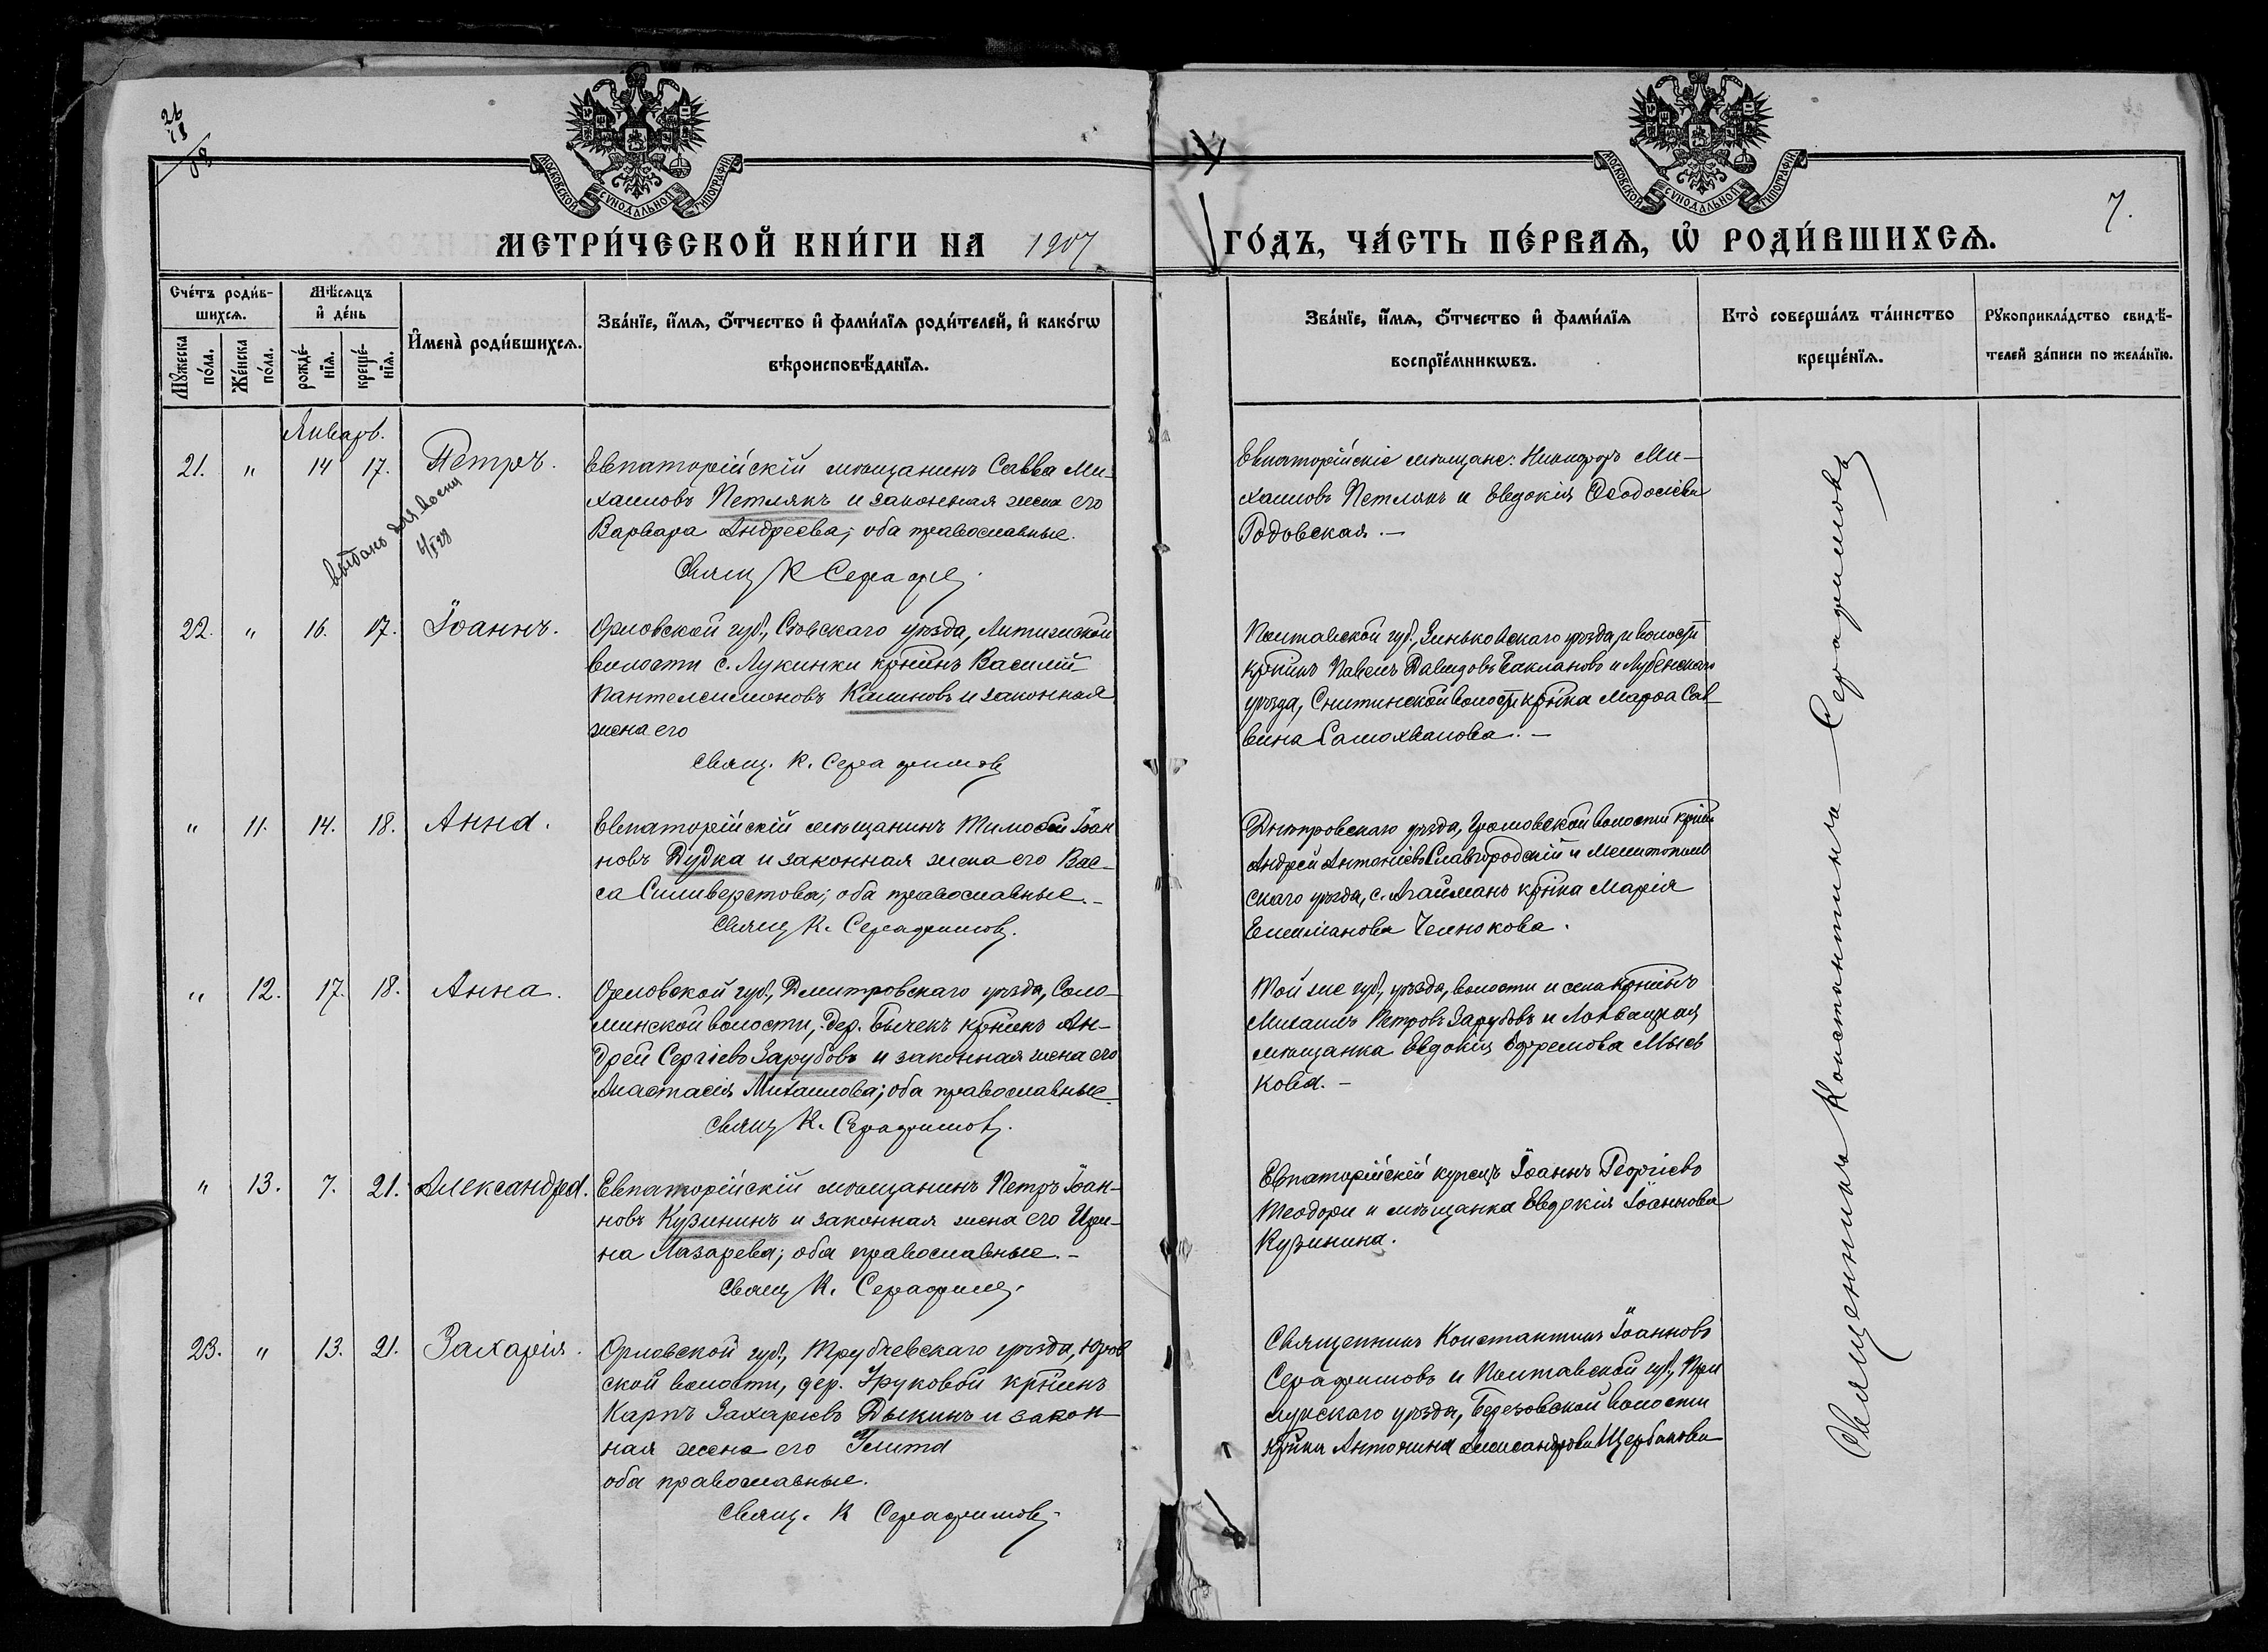 26
МОСКОВСКОЙ СѴНОДАЛЬНОЙ ТИПОГРАФІИ
МОСКОВСКОЙ СѴНОДАЛЬНОЙ ТИПОГРАФІИ
7.
МЕТРИ́ЧЕСКОЙ КНИ́ГИ НА 1907 ГО́ДЪ, ЧА́СТЬ ПЕ́РВАѦ, Ѡ҆ РОДИ́ВШИХСѦ.
Сче́тъ роди́в-
шихсѧ.
Мꙋ́жеска
по́ла.
Же́нска
по́ла.
Мѣ́сѧцъ
и҆ де́нь
рожде́-
нїѧ.
креще́-
нїѧ.
И҆мена̀ роди́вшихсѧ.
Зва́нїе, и҆́мѧ, ѻ҆́тчество и҆ фами́лїѧ роди́телей, и҆ како́гѡ
вѣроисповѣ́данїѧ.
Зва́нїе, и҆́мѧ, ѻ҆́тчество и҆ фами́лїѧ
воспрїе́мникѡвъ.
Кто̀ соверша́лъ та́инство
креще́нїѧ.
Рꙋкоприкла́дство свидѣ́-
телей за́писи по жела́нїю.
Январь.
21. " 14 17. Петръ.
Евпаторійскій мѣщанинъ Савва Ми-
хаиловъ Петлякъ и законная жена его
Варвара Андреева; оба православные.
Свящ К Сераф
Евпаторійскіе мѣщане: Никифоръ Ми-
хаиловъ Петлякъ и Евдокія Ѳеодосіева
Родовская. —
выданъ для
22. " 16. 17. Іоаннъ.
Орловской губ., Сѣвскаго уѣзда, Литижской
волости с. Лукинки крнинъ Василій
Пантелеимоновъ Калиновъ и законная
жена его
Свящ. К. Серафимовъ
Полтавской губ., Зиньковскаго уѣзда и волости
крнинъ Павелъ Давидовъ Баклановъ и Лубенскаго
уѣзда, Снитинской волости крнка Марѳа Сав
вина Самохвалова. —
" 11. 14. 18. Анна.
Евпаторійскій мѣщанинъ Тимоѳей Іоан
новъ Дудка и законная жена его Вас-
са Сильверстова; оба православные. –
Свящ К. Серафимовъ.
Днѣпровскаго уѣзда, Громовской волости крнинъ
Андрей Антоніевъ Славгородскій и Мелитополь
скаго уѣзда, с. Агайманъ крнка Марія
Челнокова.
" 12. 17. 18. Анна.
Орловской губ., Дмитровскаго уѣзда, Соло-
минской волости, дер. Бычекъ крнинъ Ан-
дрей Сергіевъ Зарубовъ и законная жена его
Анастасія Михаилова; оба православные.
Свящ К. Серафимовъ.
Той же губ., уѣзда, волости и села крнинъ
Михаилъ Петровъ Зарубовъ и Лохвицкая
мѣщанка Евдокія Ефремова
кова. –
" 13. 7. 21. Александра.
Евпаторійскій мѣщанинъ Петръ Іоан-
новъ Кузининъ и законная жена его Ири-
на Лазарева; оба православные. –
Свящ К. Серафим.
Евпаторійскій купецъ Іоаннъ Георгіевъ
Теодори и мѣщанка Евдокія Іоаннова
Кузинина.
23. " 13. 21. Захарія.
Орловской губ., Трубчевскаго уѣзда, Юров
ской волости, дер. Груковой крнинъ
Карпъ Захаріевъ Дыкинъ и закон-
ная жена его Улита
оба православные.
Свящ. К Серафимовъ
Священникъ Константинъ Іоанновъ
Серафимовъ и Полтавской губ., При
лукскаго уѣзда, Березовской волости
крнка Антонина Александрова Щербакова
Священникъ Константинъ Серафимовъ